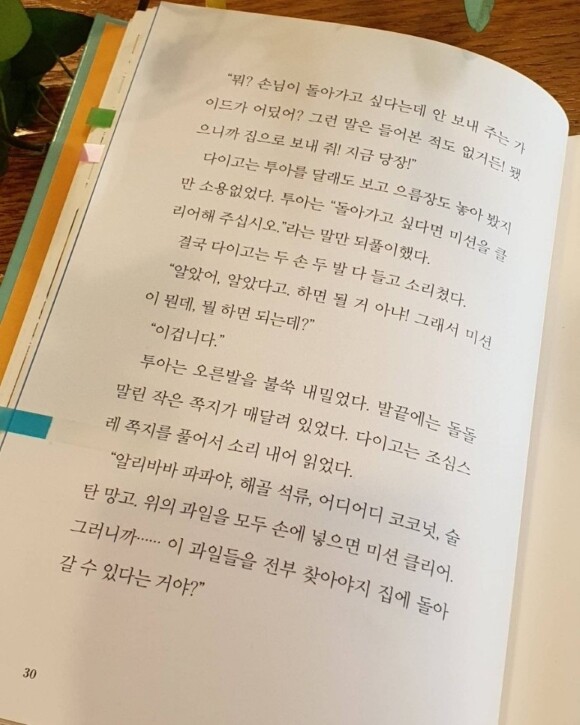 “뭐? 손님이 돌아가고 싶다는데 안 보내 주는 가
이드가 어딨어? 그런 말은 들어본 적도 없거든! 됐
으니까 집으로 보내 줘! 지금 당장!”
다이고는 투아를 달래도 보고 으름장도 놓아 봤지
만 소용없었다. 투아는 “돌아가고 싶다면 미션을 클
리어해 주십시오.”라는 말만 되풀이했다.
결국 다이고는 두 손 두 발 다 들고 소리쳤다.
“알았어, 알았다고. 하면 될 거 아냐! 그래서 미션
이 뭔데, 뭘 하면 되는데?”
“이겁니다.”
투아는 오른발을 불쑥 내밀었다. 발끝에는 돌돌
말린 작은 쪽지가 매달려 있었다. 다이고는 조심스
레 쪽지를 풀어서 소리 내어 읽었다.
“알리바바 파파야, 해골 석류, 어디어디 코코넛, 술
탄 망고. 위의 과일을 모두 손에 넣으면 미션 클리어.
그러니까…… 이 과일들을 전부 찾아야지 집에 돌아
갈 수 있다는 거야?”
30